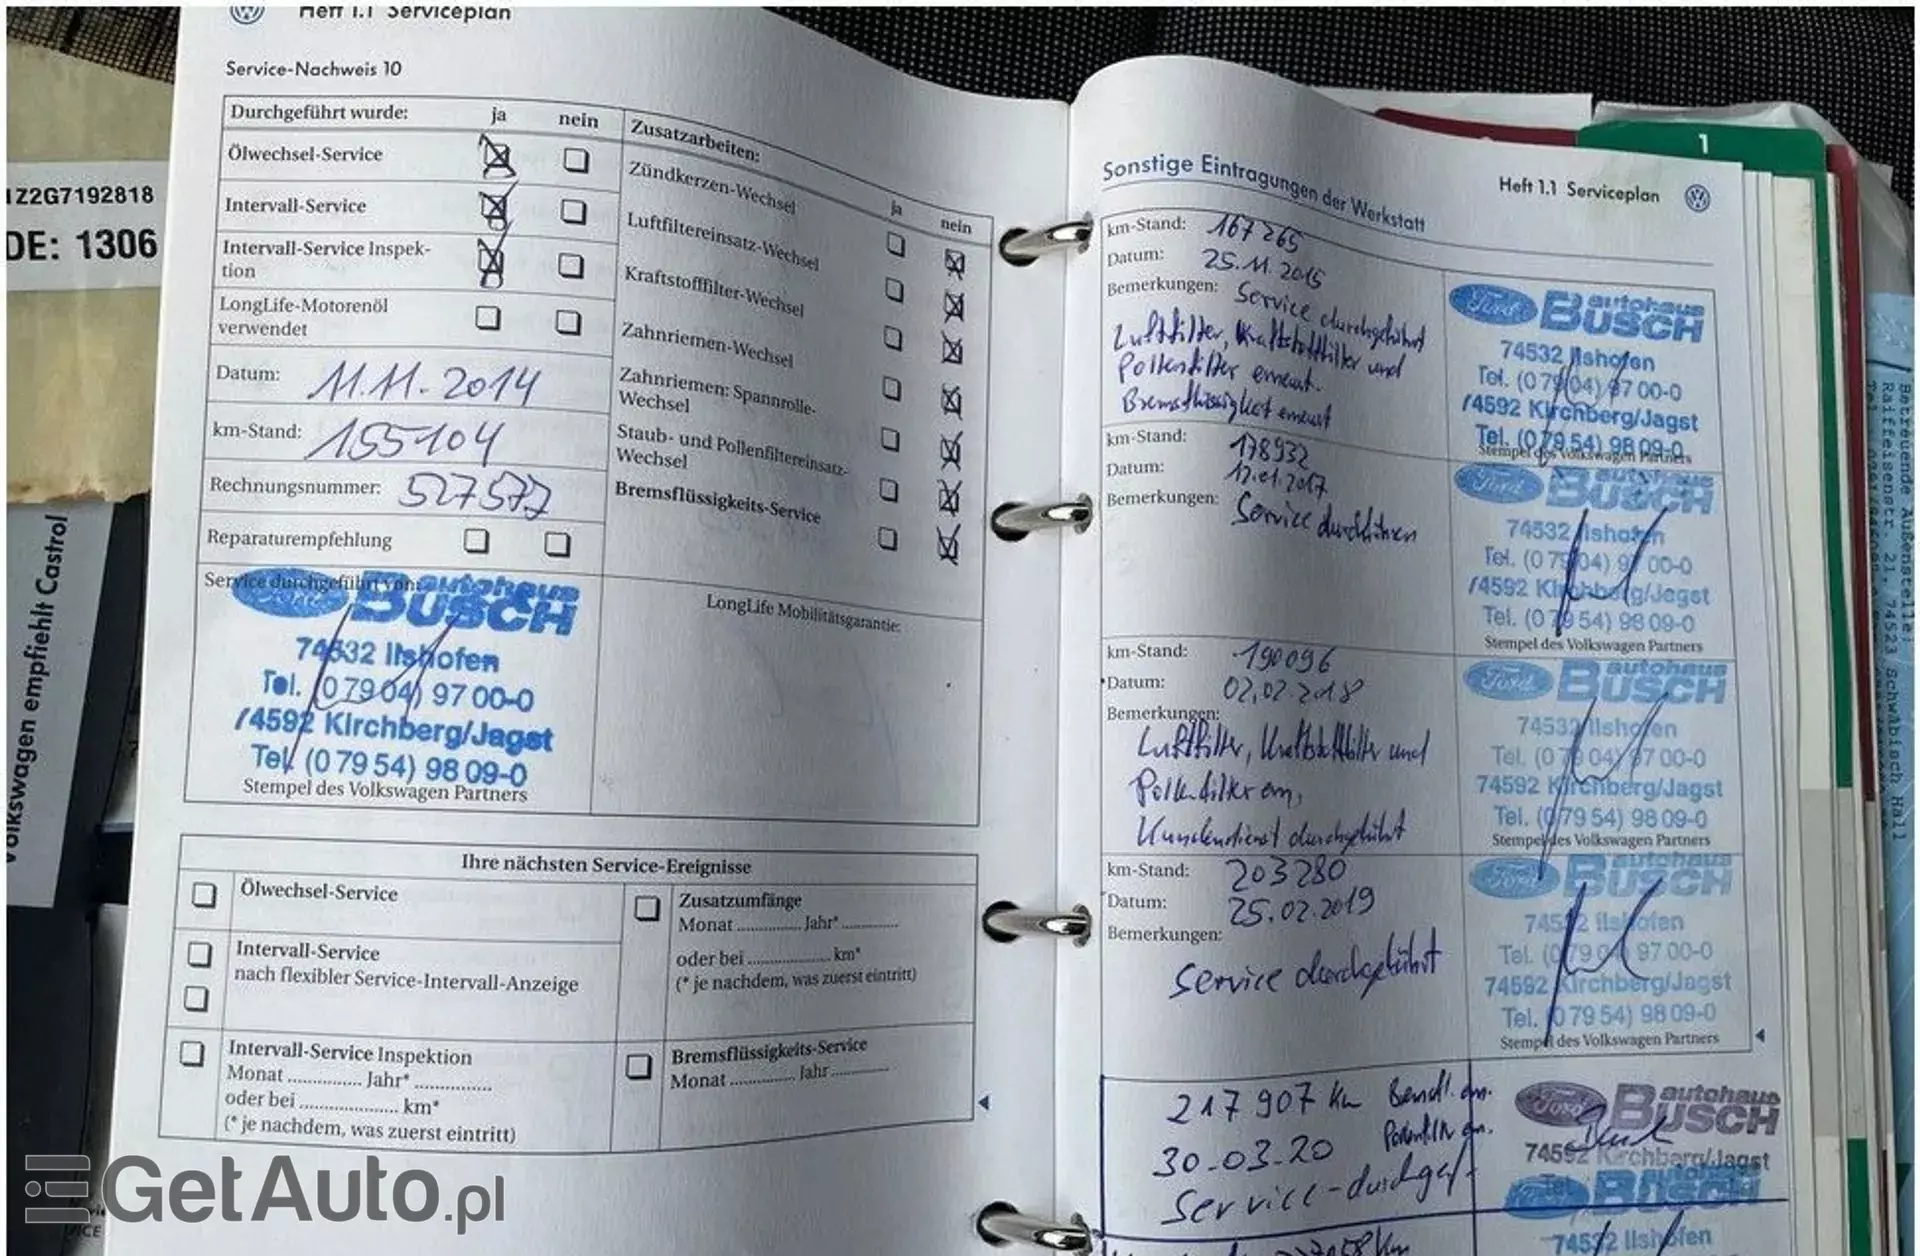 Heft 1.1 Serviceplan
Service-Nachweis 10
Durchgeführt wurde: ja nein
Ölwechsel-Service
Intervall-Service
Intervall-Service Inspek-
tion
LongLife-Motorenöl
verwendet
Datum: 11.11.2014
km-Stand: 155104
Rechnungsnummer: 527577
Reparaturempfehlung
Service durchgeführt von:
Ford autohaus
BUSCH
74532 Ilshofen
Tel. (0 79 04) 97 00-0
74592 Kirchberg/Jagst
Tel. (0 79 54) 98 09-0
Stempel des Volkswagen Partners
Zusatzarbeiten:
ja nein
Zündkerzen-Wechsel
Luftfiltereinsatz-Wechsel
Kraftstofffilter-Wechsel
Zahnriemen-Wechsel
Zahnriemen: Spannrolle-
Wechsel
Staub- und Pollenfiltereinsatz-
Wechsel
Bremsflüssigkeits-Service
LongLife Mobilitätsgarantie:
Ihre nächsten Service-Ereignisse
Ölwechsel-Service
Intervall-Service
nach flexibler Service-Intervall-Anzeige
Intervall-Service Inspektion
Monat ............... Jahr* ...............
oder bei .................... km*
(* je nachdem, was zuerst eintritt)
Zusatzumfänge
Monat ............... Jahr* ............
oder bei .................. km*
(* je nachdem, was zuerst eintritt)
Bremsflüssigkeits-Service
Monat ............... Jahr ...............
Sonstige Eintragungen der Werkstatt
Heft 1.1 Serviceplan
km-Stand: 167265
Datum: 25.11.2015
Bemerkungen: Service durchgeführt
Luftfilter, Kraftstofffilter und
Pollenfilter erneut.
Bremsflüssigkeit erneut
Ford autohaus
BUSCH
74532 Ilshofen
Tel. (0 79 04) 97 00-0
74592 Kirchberg/Jagst
Tel. (0 79 54) 98 09-0
Stempel des Volkswagen Partners
km-Stand: 178932
Datum: 17.01.2017
Bemerkungen: Service durchführen
Ford BUSCH
74532 Ilshofen
Tel. (0 79 04) 97 00-0
74592 Kirchberg/Jagst
Tel. (0 79 54) 98 09-0
Stempel des Volkswagen Partners
km-Stand: 190096
Datum: 02.02.2018
Bemerkungen:
Luftfilter, Kraftstofffilter und
Pollenfilter ern,
Kundendienst durchgeführt
Ford autohaus
BUSCH
74532 Ilshofen
Tel. (0 79 04) 97 00-0
74592 Kirchberg/Jagst
Tel. (0 79 54) 98 09-0
Stempel des Volkswagen Partners
km-Stand: 203280
Datum: 25.02.2019
Bemerkungen:
Service durchgeführt
Ford autohaus
BUSCH
74532 Ilshofen
Tel. (0 79 04) 97 00-0
74592 Kirchberg/Jagst
Tel. (0 79 54) 98 09-0
Stempel des Volkswagen Partners
217907 Km
30-03-20
Service-durchgef.
Ford autohaus
BUSCH
74592 Kirchberg/Jagst
BUSCH
74532 Ilshofen
1
1Z2G7192818
DE: 1306
Volkswagen empfiehlt Castrol
Betreuende Außenstelle:
Raiffeisenstr. 21, 74523 Schwäbisch Hall
GetAuto.pl